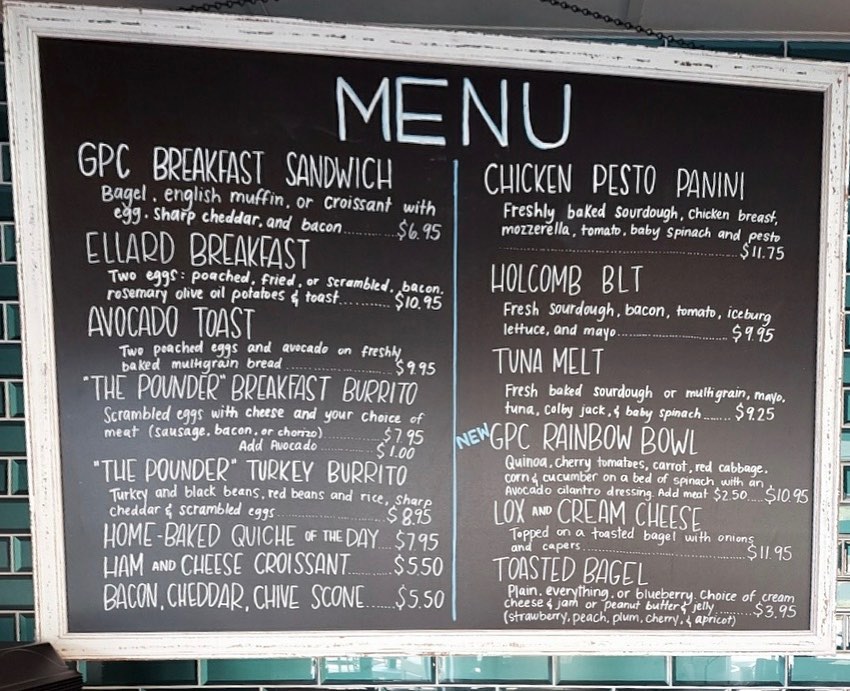 MENU
GPC BREAKFAST SANDWICH
Bagel, english muffin, or croissant with
egg, sharp cheddar, and bacon.......$6.95
ELLARD BREAKFAST
Two eggs: poached, fried, or scrambled, bacon,
rosemary olive oil potatoes & toast.......$10.95
AVOCADO TOAST
Two poached eggs and avocado on freshly
baked multigrain bread.......$9.95
"THE POUNDER" BREAKFAST BURRITO
Scrambled eggs with cheese and your choice of
meat (sausage, bacon, or chorizo).......$7.95
Add Avocado.......$1.00
"THE POUNDER" TURKEY BURRITO
Turkey and black beans, red beans and rice, sharp
cheddar & scrambled eggs.......$8.95
HOME-BAKED QUICHE OF THE DAY....$7.95
HAM AND CHEESE CROISSANT.......$5.50
BACON, CHEDDAR, CHIVE SCONE.......$5.50
CHICKEN PESTO PANINI
Freshly baked sourdough, chicken breast,
mozzerella, tomato, baby spinach and pesto
.......$11.75
HOLCOMB BLT
Fresh sourdough, bacon, tomato, iceburg
lettuce, and mayo.......$9.95
TUNA MELT
Fresh baked sourdough or multigrain, mayo,
tuna, colby jack, & baby spinach.......$9.25
NEW GPC RAINBOW BOWL
Quinoa, cherry tomatoes, carrot, red cabbage,
corn & cucumber on a bed of spinach with an
Avocado cilantro dressing. Add meat $2.50....$10.95
LOX AND CREAM CHEESE
Topped on a toasted bagel with onions
and capers.......$11.95
TOASTED BAGEL
Plain, everything, or blueberry. Choice of cream
cheese & jam or peanut butter & jelly.......$3.95
(strawberry, peach, plum, cherry, & apricot)